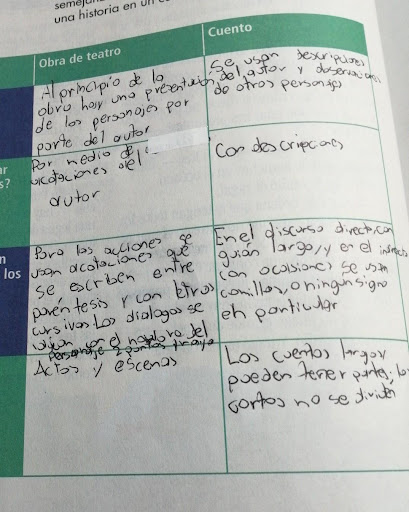 semejan
una historia en un c
Obra de teatro
Cuento
Al principio de la
obra hay una presentación
de los personajes por
parte del autor
Se usan descripciones
del autor y
de otros personajes
ar
s?
Por medio de
acotaciones del
autor
Con descripciones
n
los
Para las acciones se
usan acotaciones que
se escriben entre
paréntesis y con letras
cursivas Los dialogos se
el nombre del
personaje 2 puntos
En el discurso directo, con
guión largo, y en el
con ocasiones se usan
comillas, o ningun signo
en particular
Actos y escenas
Los cuentos largos
pueden tener partes, lo
cortos no se dividen